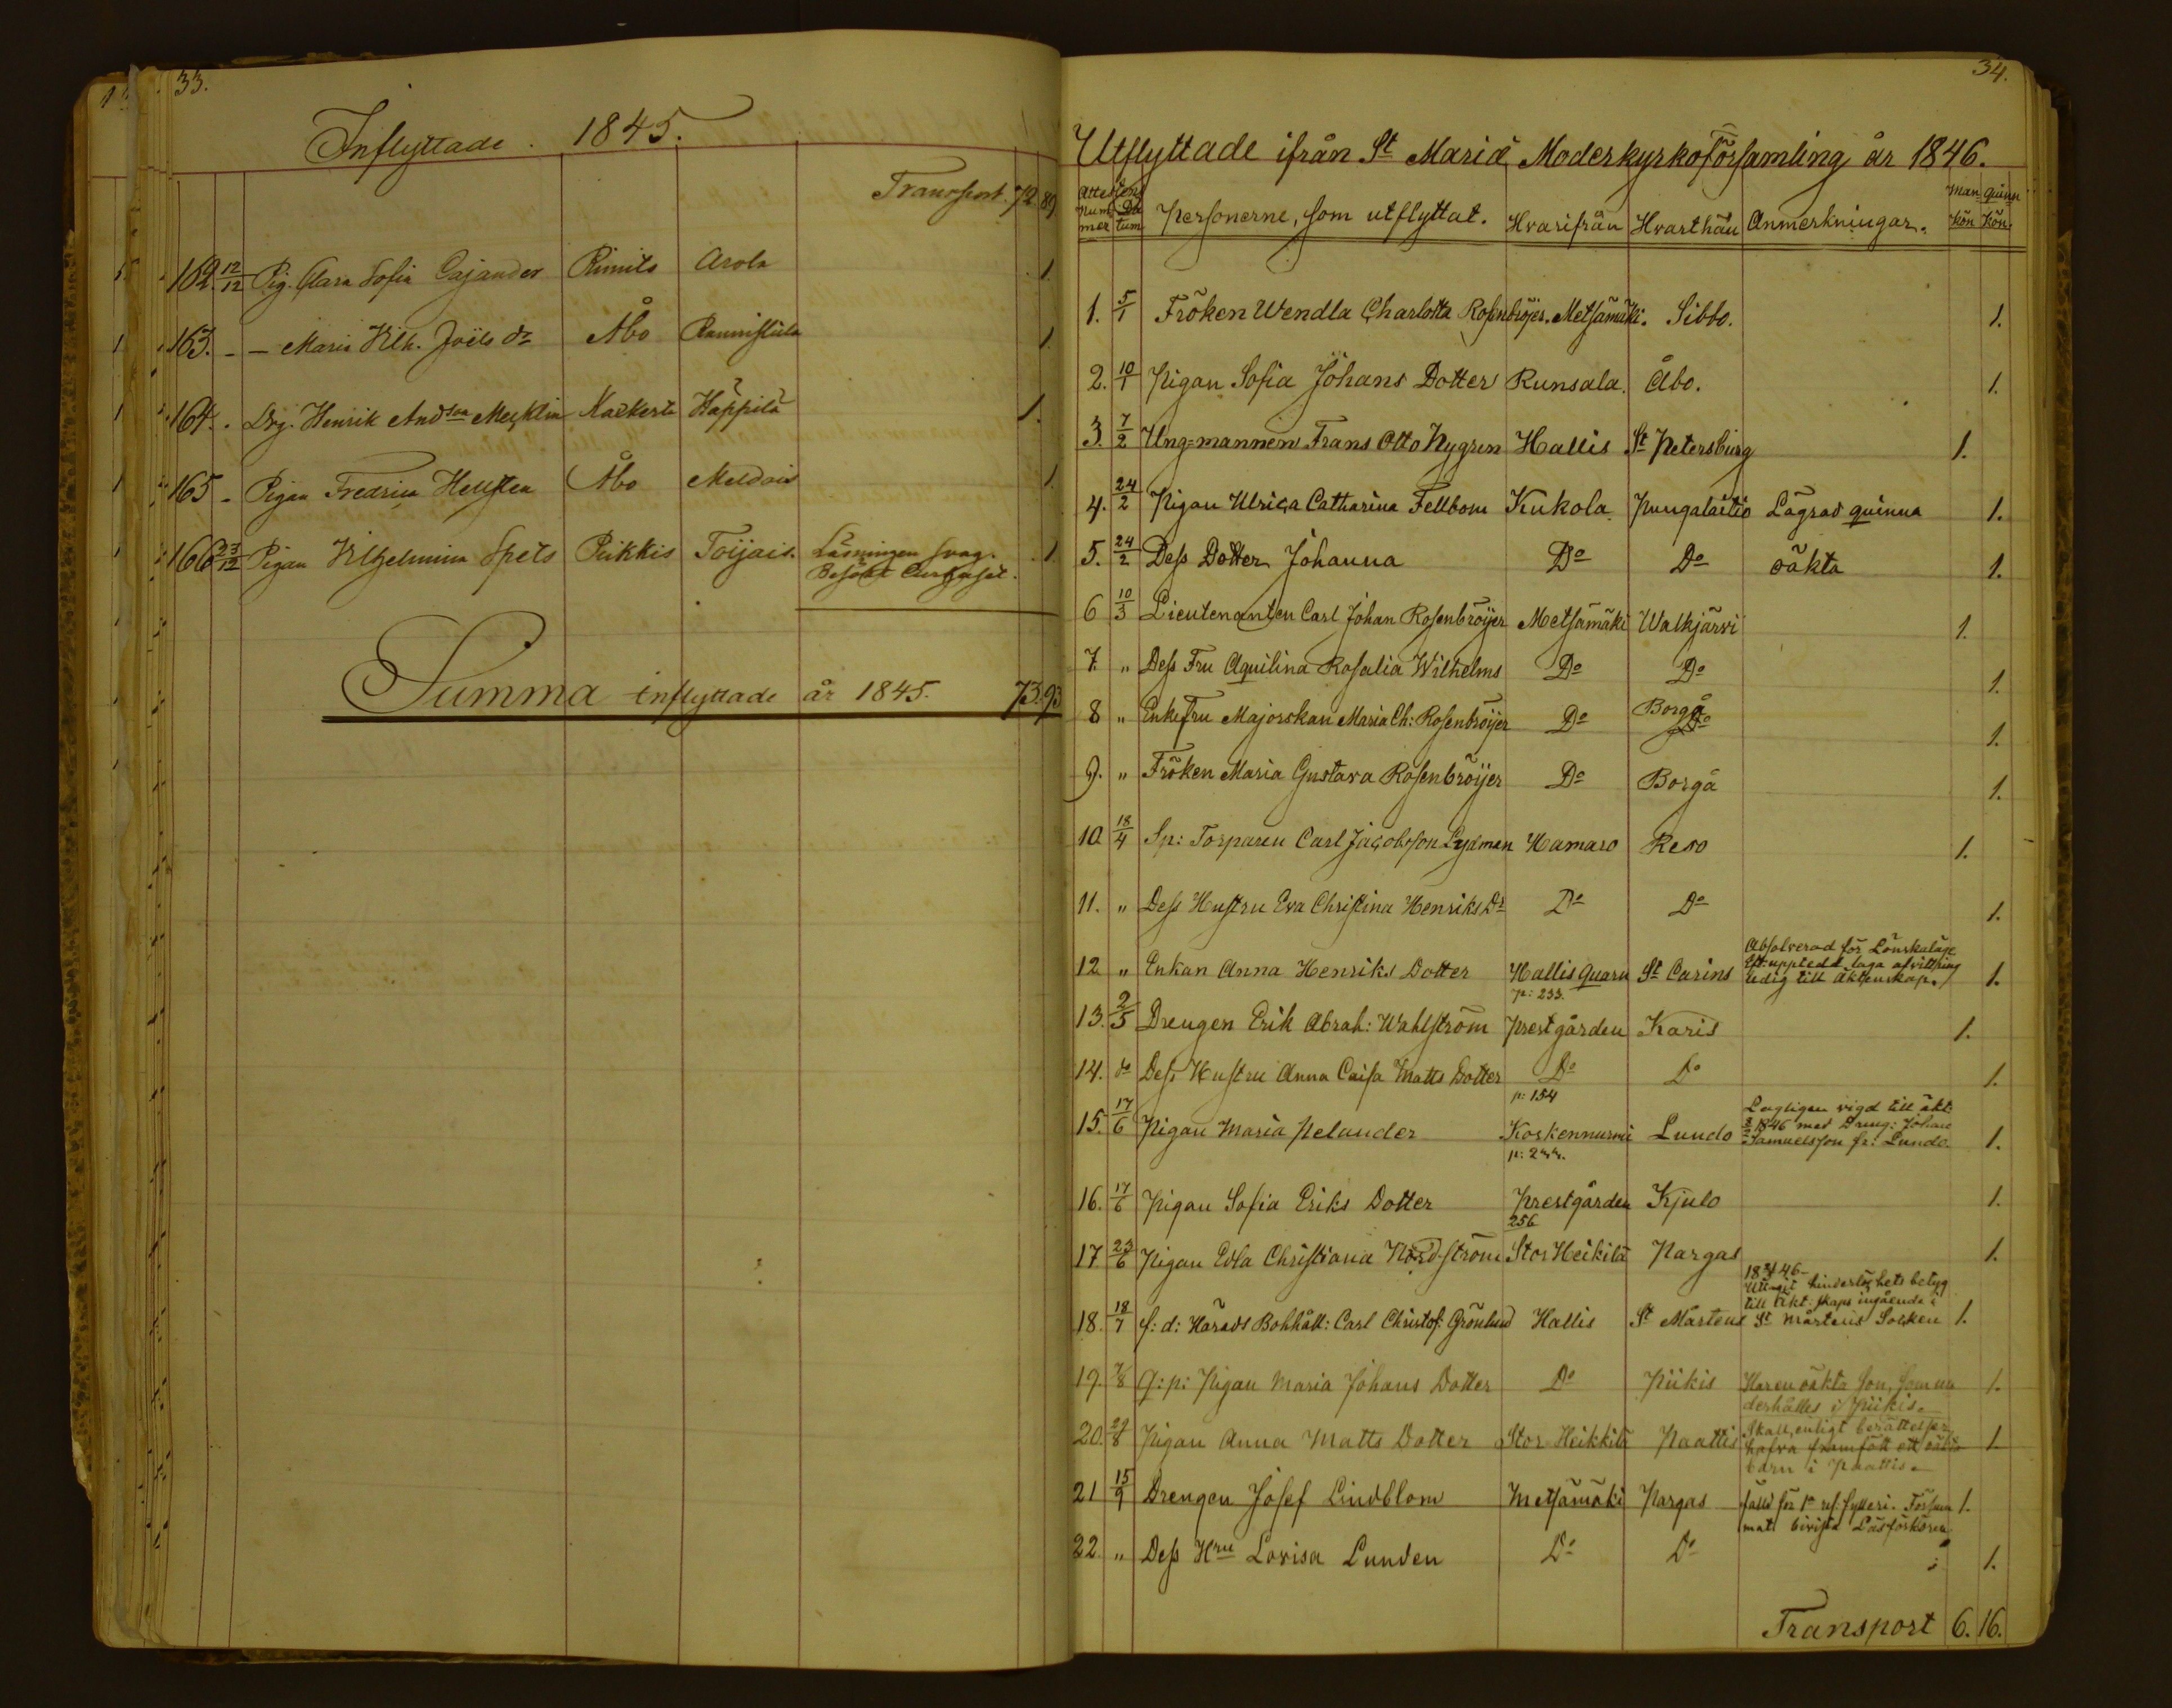 33.
Inflyttade. 1845.
Transport. 72 89
162. 12/12 Pig. Clara Sofia Cajander Rimito Arola 1.
163. - - Maria Vilh. Joëls dr Åbo Rannistula 1.
164. - Drg. Henrik Andson Mecklin Nackerla Happila 1.
165 - Pigan Fredrica Hellsten Åbo Meldois 1.
166 23/12 Pigan Vilhelmina Spets Piikkis Toijais. Läsningen svag. 1.
Besökt
Summa inflyttade år 1845. 73. 93
34.
Utflyttade ifrån St Mariæ Moderkyrkoförsamling år 1846.
Attestens Nummer Datum Personerne, som utflyttat. Hvarifrån Hvarthän Anmerkningar. Man kön Qvinn kön.
1. 5/1 Fröken Wendla Charlotta Rosenbröjer. Metsämäki. Sibbo. 1.
2. 10/1 Pigan Sofia Johans Dotter Runsala. Åbo. 1.
3. 7/2 Ung=mannen Frans Otto Nygren Hallis St Petersburg 1.
4. 24/2 Pigan Ulrica Catharina Fellbom Kukola Pungalaitio Lägrad quinna 1.
5. 24/2 Dess Dotter Johanna Do Do oäkta 1.
6 10/3 Lieutenanten Carl Johan Rosenbröijer Metsämäki Walkjärvi 1.
7. " Dess Fru Aquilina Rosalia Wilhelms Do Do 1.
8 " EnkeFru Majorskan Maria Ch: Rosenbröijer Do Borgå Do 1.
9. " Fröken Maria Gustava Rosenbröijer Do Borgå 1.
10. 18/4 Sp: Torparen Carl Jacobsson Lydman Hamaro Reso 1.
11. " Dess Hustru Eva Christina Henriks Dr Do Do 1.
12 " Enkan Anna Henriks Dotter Hallis quarn St Carins Absolverad för Lönskaläge
Eft. upptedd laga afvittring
ledig till äktenskap. 1.
p: 233.
13. 2/5 Drengen Erik Abrah: Wahlström Prestgården Karis 1.
14. do Dess Hustru Anna Caisa Matts Dotter Do Do 1.
p: 154
15. 17/6 Pigan Maria Pelander Koskennurmi Lundo Lagligen vigd till äkt.
1846 med Dreng: Johan
Samuelsson fr: Lundo. 1.
16. 17/6 Pigan Sofia Eriks Dotter Prestgården Kjulo 1.
256
17 23/6 Pigan Edla Christiana Nordström Stor Heikilä Pargas 1.
18. 18/7 f: d: Härads Bohhåll: Carl Christof: Grönlund Hallis St Mårtens Uttagit hinderlöshets betyg
till Äkt:skaps ingående i
St Mårtens Socken 1.
19. 7/8 Q:p: Pigan Maria Johans Dotter Do Piikis Har en oäkta son, som un
derhålles i Piikis. 1.
20. 29/8 Pigan Anna Matts Dotter Stor Heikkilä Paattis Skall, enligt berättelser
hafva framfödt ett oäkta
barn i Paattis. 1.
21 15/9 Drengen Josef Lindblom Metsämäki Pargas fälld för 1a res: fylleri. Försum
mat bivista Läsförhören 1.
22 " Dess Hru Lovisa Lunden Do Do 1.
Transport 6. 16.